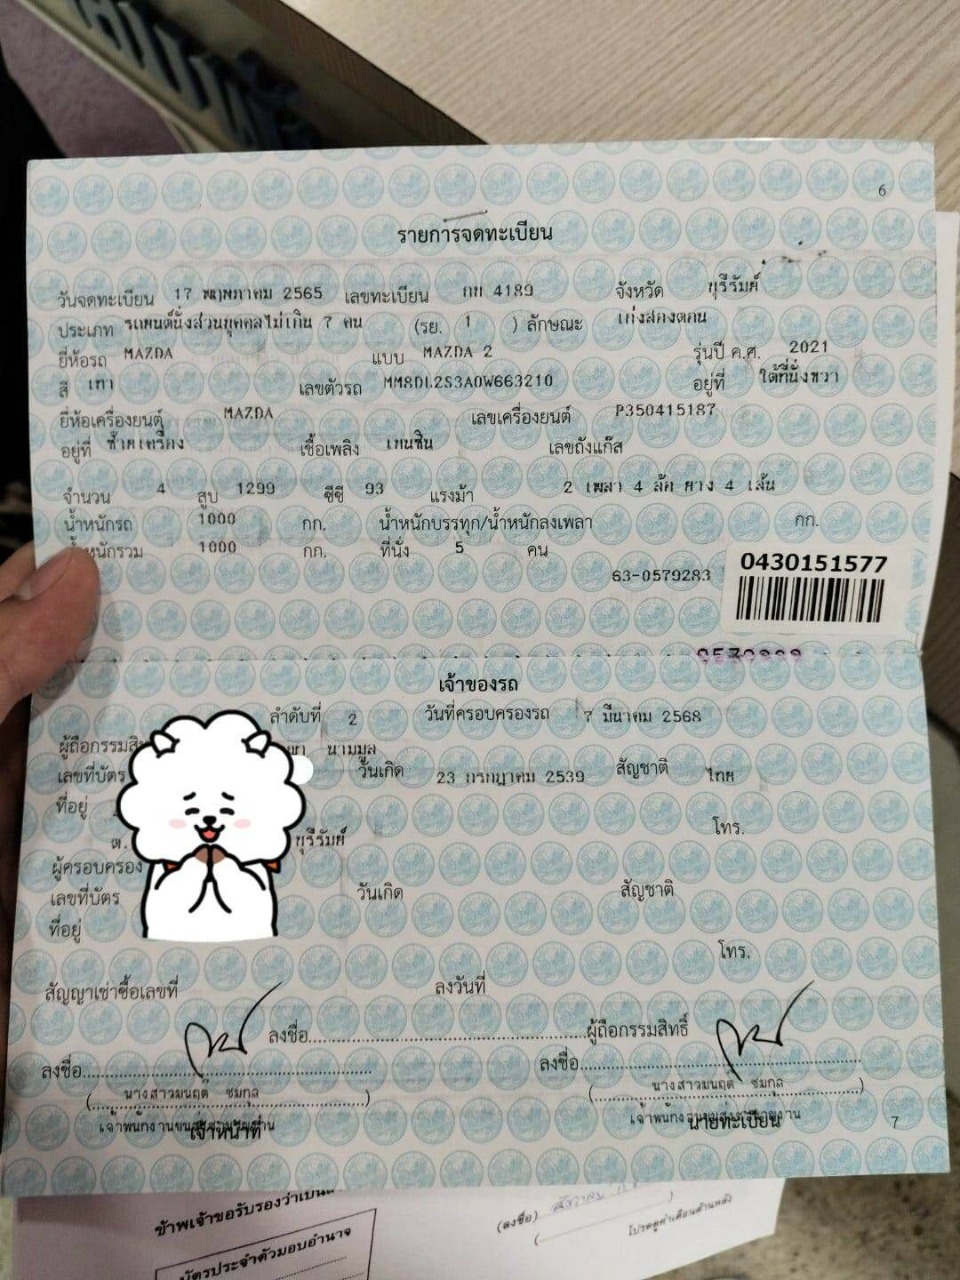 6
รายการจดทะเบียน
วันจดทะเบียน 17 พฤษภาคม 2565 เลขทะเบียน กผ 4189 จังหวัด บุรีรัมย์
ประเภท รถยนต์นั่งส่วนบุคคลไม่เกิน 7 คน (รย. 1 ) ลักษณะ เก๋งสองตอน
ยี่ห้อรถ MAZDA แบบ MAZDA 2 รุ่นปี ค.ศ. 2021
สี เทา เลขตัวรถ MM8DL2S3A0W663210 อยู่ที่ ใต้ที่นั่งขวา
ยี่ห้อเครื่องยนต์ MAZDA เลขเครื่องยนต์ P350415187
อยู่ที่ ซ้ายเครื่อง เชื้อเพลิง เบนซิน เลขถังแก๊ส
จำนวน 4 สูบ 1299 ซีซี 93 แรงม้า 2 เพลา 4 ล้อ ยาง 4 เส้น
น้ำหนักรถ 1000 กก. น้ำหนักบรรทุก/น้ำหนักลงเพลา กก.
น้ำหนักรวม 1000 กก. ที่นั่ง 5 คน
63-0579283
0430151577
เจ้าของรถ
ลำดับที่ 2 วันที่ครอบครองรถ 7 มีนาคม 2568
ผู้ถือกรรมสิ นามมูล
เลขที่บัตร วันเกิด 23 กรกฎาคม 2539 สัญชาติ ไทย
ที่อยู่
ต. บุรีรัมย์ โทร.
ผู้ครอบครอง
เลขที่บัตร วันเกิด สัญชาติ
ที่อยู่
โทร.
สัญญาเช่าซื้อเลขที่ ลงวันที่
ลงชื่อ ผู้ถือกรรมสิทธิ์
ลงชื่อ ลงชื่อ
(นางสาวมนฤดี ชมกุล) (นางสาวมนฤดี ชมกุล)
เจ้าพนักงานขนส่งชำนาญงาน เจ้าพนักงานขนส่งชำนาญงาน
เจ้าหน้าที่ นายทะเบียน 7
ข้าพเจ้าขอรับรองว่าเป็น
(ลงชื่อ)
โปรดดูคำเตือนด้านหลัง
บัตรประจำตัวมอบอำนาจ